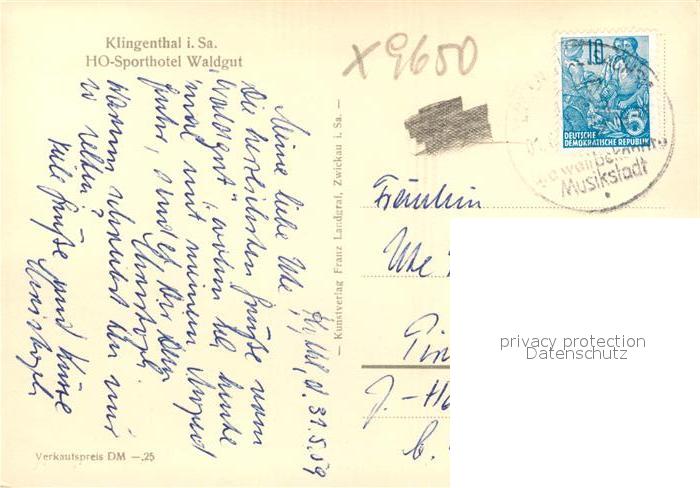 Klingenthal i. Sa.
HO-Sporthotel Waldgut
x 9600
10
5
DEUTSCHE
DEMOKRATISCHE REPUBLIK
Musikstadt
Klthl, d. 31.5.59
Meine liebe Ute,
die herzlichsten Grüße vom
"Waldgut", wohin ich heute
mal mit meinem Moped
fuhr, sendet dir dein
Christoph.
Warum schreibst du mir
so selten?
Viele Grüße und Küsse
Christoph
Kunstverlag Franz Landgraf, Zwickau i. Sa.
Verkaufspreis DM —,25
Fräulein
Ute
privacy protection
Datenschutz